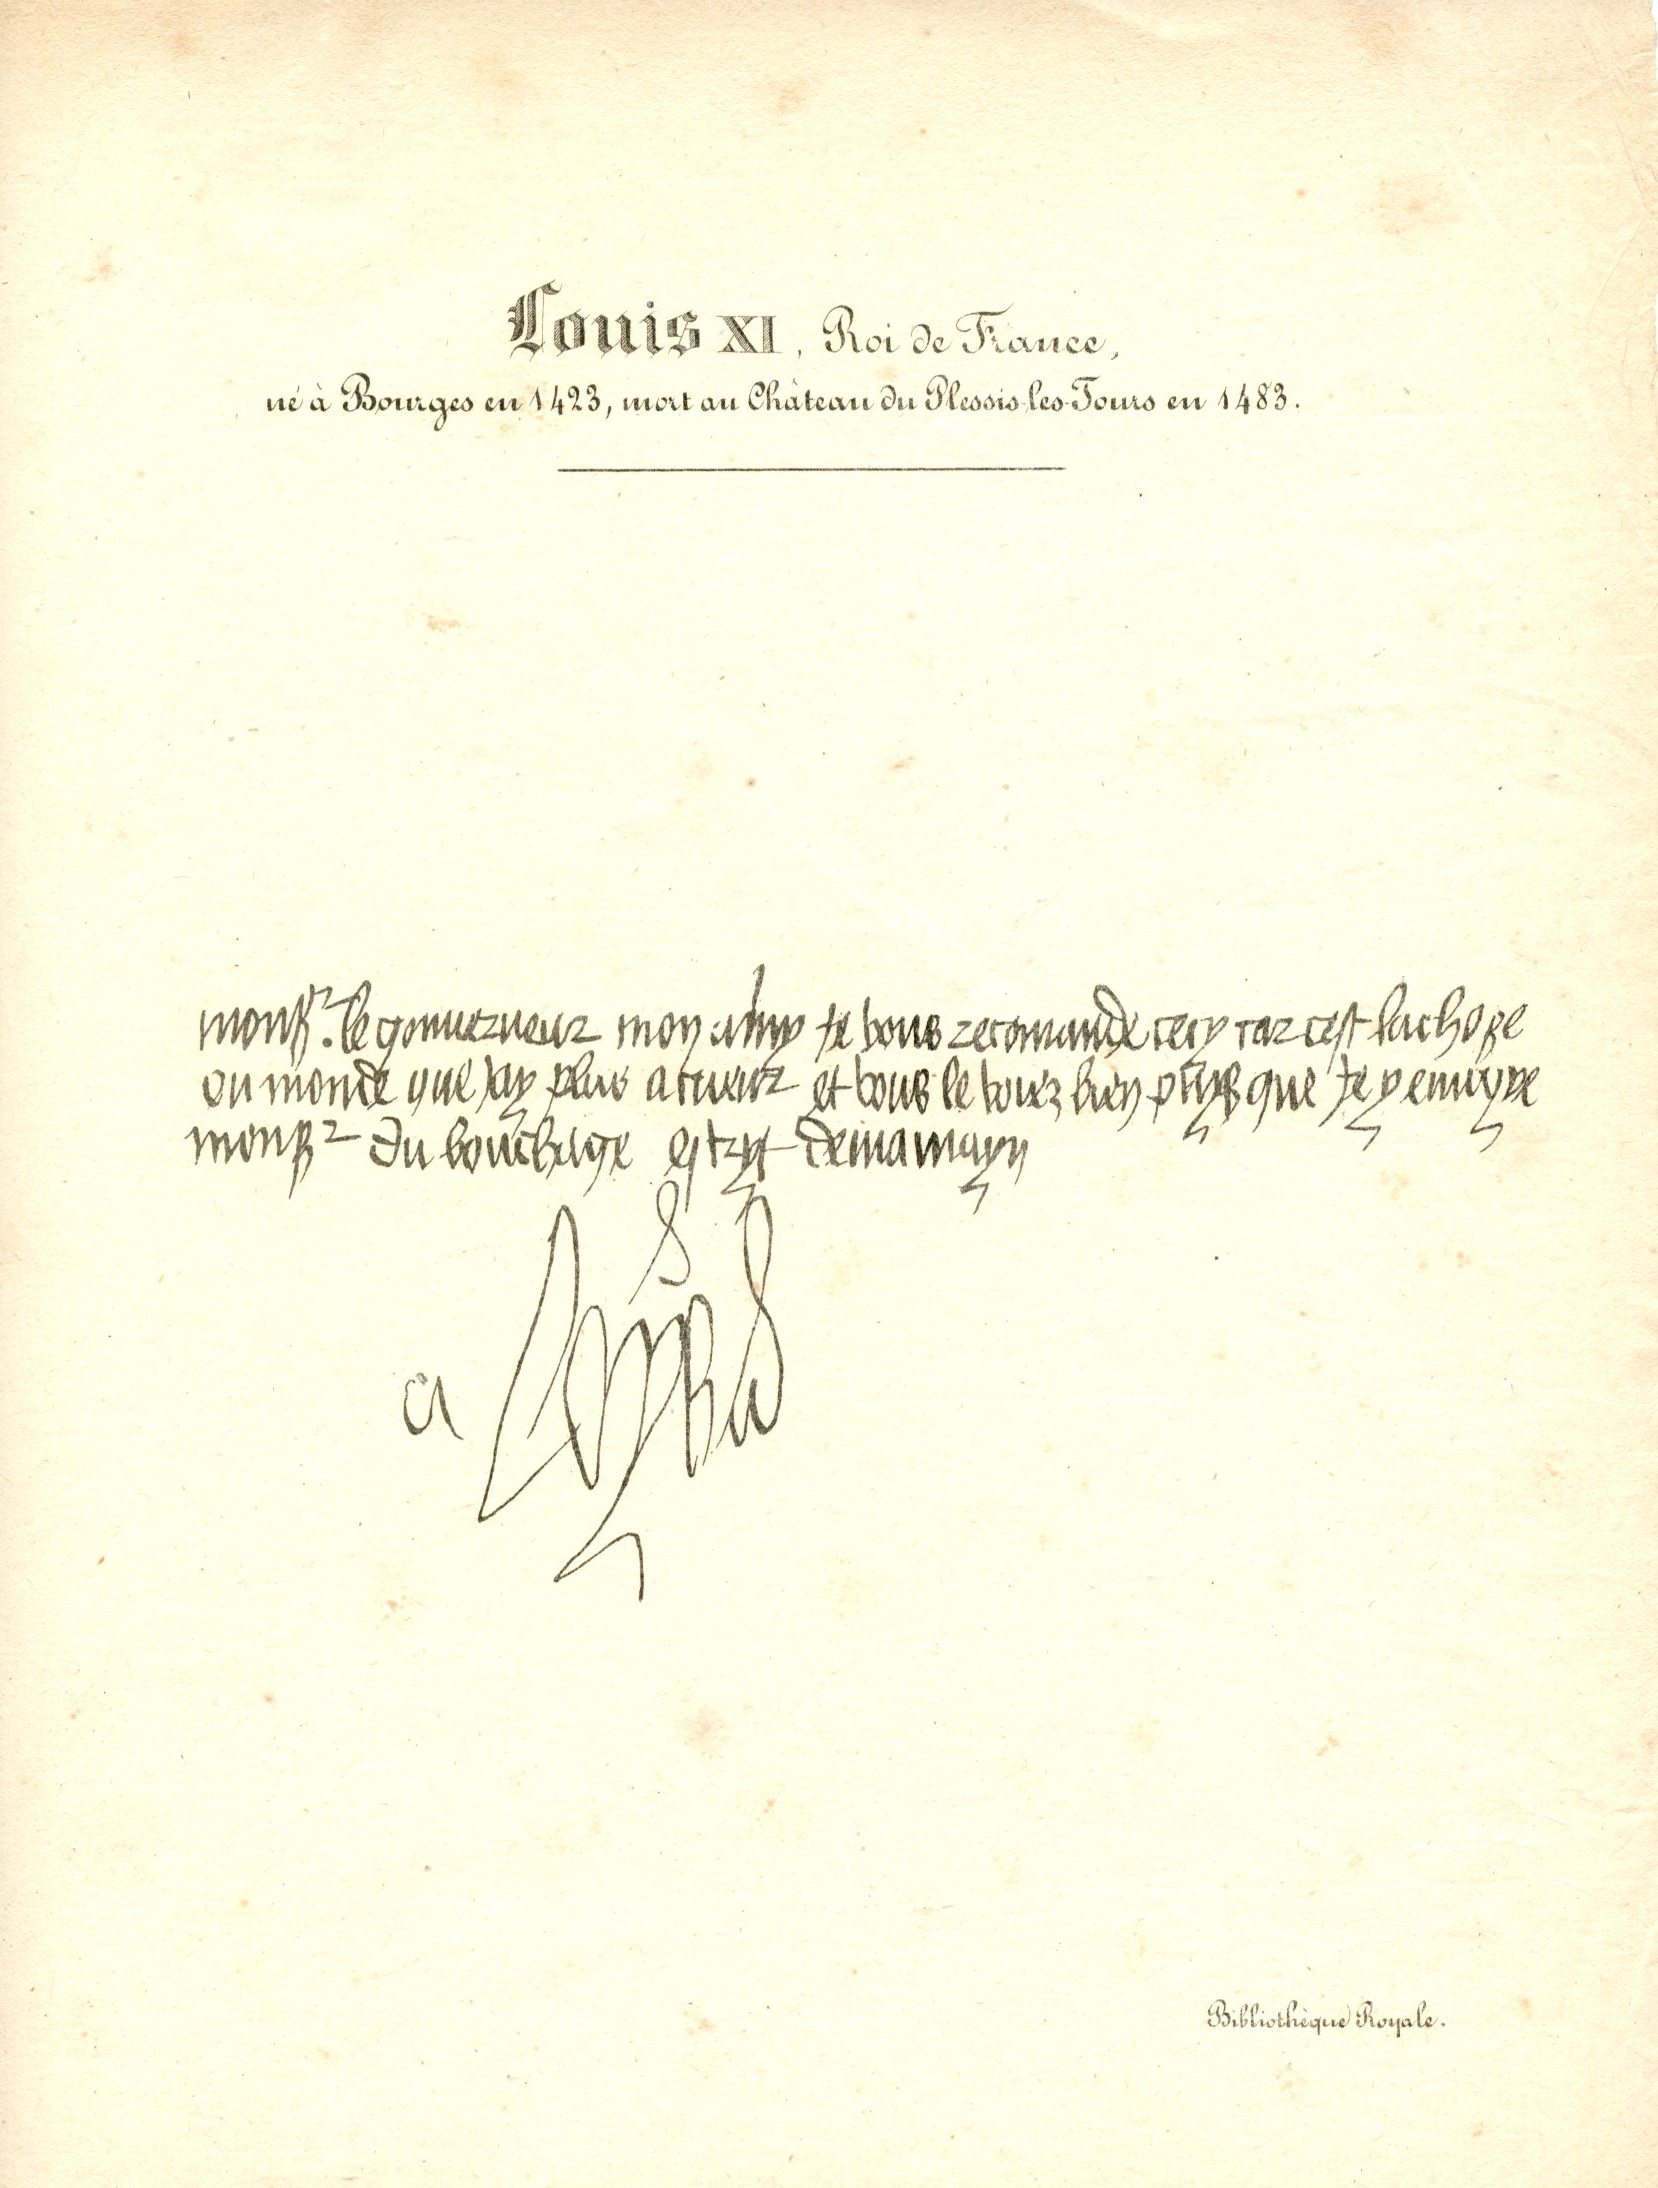 Louis XI, Roi de France,
né à Bourges en 1423, mort au Château du Plessis-les-Tours en 1483.
monsr. le gouuerneur mon amy je vous recomande cecy car cest la chose
ou monde que jay plus a cueur et vous le voiez bien puys que je y enuoye
monsr du bouchage escryt de ma mayn
Loys
Bibliothèque Royale.